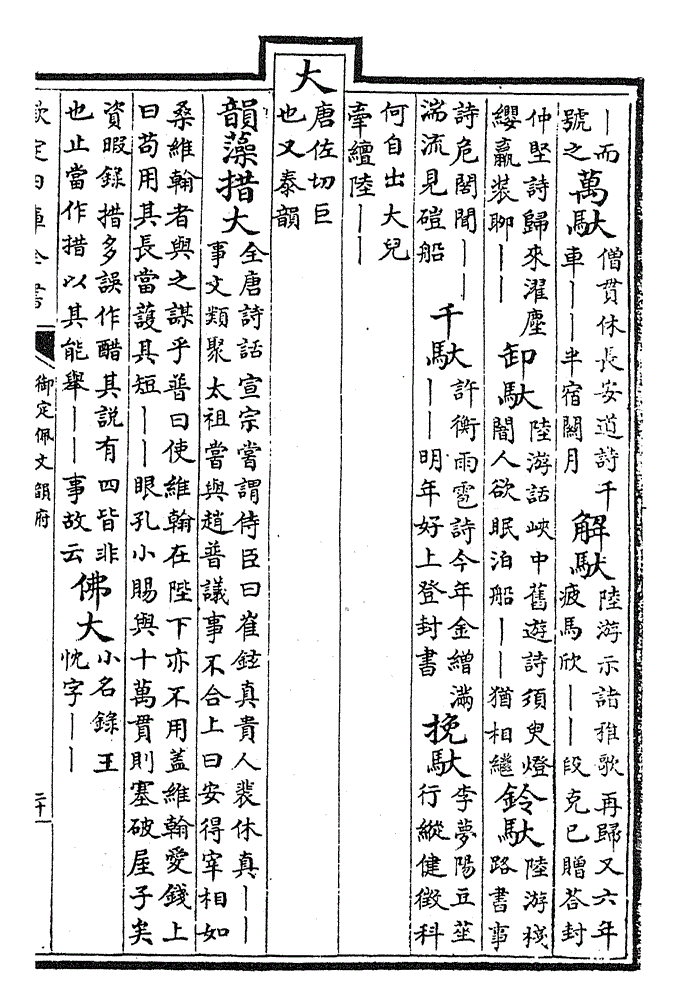 ｜而
號之
萬馱
僧貫休長安道詩千
車｜｜半宿關月
解馱
陸游示諸稚歌再歸又六年
疲馬欣｜｜段克己贈荅封
仲堅詩歸來濯塵
纓羸裝聊｜｜
卸馱
陸游話峽中舊遊詩須臾燈
闇人欲眠泊船｜｜猶相繼
鈴馱
陸游棧
路書事
詩危閣聞｜｜
湍流見磓船
千馱
許衡雨雹詩今年金繒滿
｜｜明年好上登封書
挽馱
李夢陽豆莝
行縱健徵科
何自出大兒
牽繵陸｜｜
大
唐佐切巨
也又泰韻
韻藻措大
全唐詩話宣宗嘗謂侍臣曰崔鉉真貴人裴休真｜｜
事文類聚太祖嘗與趙普議事不合上曰安得宰相如
桑維翰者與之謀乎普曰使維翰在陛下亦不用蓋維翰愛錢上
曰苟用其長當護其短｜｜眼孔小賜與十萬貫則塞破屋子矣
資暇錄措多誤作醋其說有四皆非
也止當作措以其能舉｜｜事故云
佛大
小名錄王
忱字｜｜
欽定四庫全書
御定佩文韻府
二十